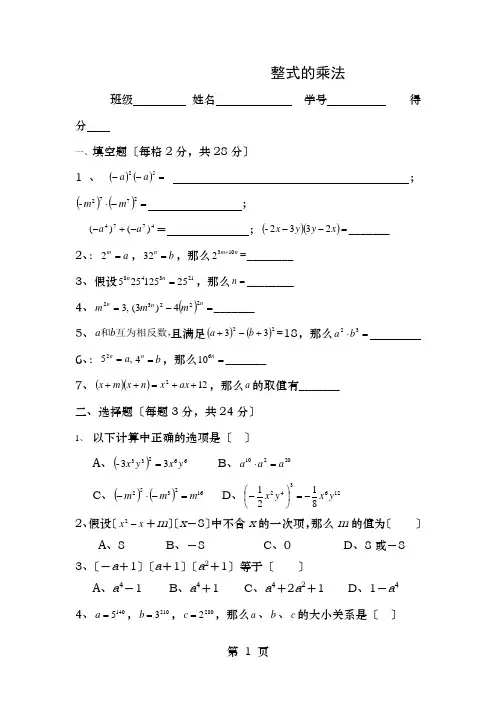 整式的乘法
班级 姓名 学号 得
分
一、填空题〔每格2分，共28分〕
1、 (-a)²(-a)⁵= ；
(-m²)⁷·(-m⁷)²= ；
(-a⁴)⁷+(-a⁷)⁴= ；(-2x-3y)(3y-2x)=______
2、：2ᵐ=a，32ⁿ=b，那么2³ᵐ⁺¹⁰ⁿ=________
3、假设5⁸ⁿ25⁴125³ⁿ=25²¹，那么n=________
4、m²ⁿ=3, (3m³ⁿ)²-4(m²)²ⁿ=_______
5、a和b互为相反数,且满足(a+3)²-(b+3)²=18，那么a²·b³=
6、：5²ⁿ=a, 4ⁿ=b，那么10⁶ⁿ=_______
7、(x+m)(x+n)=x²+ax+12，那么a的取值有_______
二、选择题〔每题3分，共24分〕
1、 以下计算中正确的选项是〔 〕
A、(-3x³y³)²=3x⁶y⁶ B、a¹⁰·a²=a²⁰
C、(-m²)⁵·(-m³)²=m¹⁶ D、(-1/2x²y⁴)³=-1/8x⁶y¹²
2、假设〔x²-x+m〕〔x-8〕中不含x的一次项，那么m的值为〔 〕
A、8 B、-8 C、0 D、8或-8
3、〔-a+1〕〔a+1〕〔a²+1〕等于〔 〕
A、a⁴-1 B、a⁴+1 C、a⁴+2a²+1 D、1-a⁴
4、a=5¹⁴⁰，b=3²¹⁰，c=2²⁸⁰，那么a、b、c的大小关系是〔 〕
第 1 页